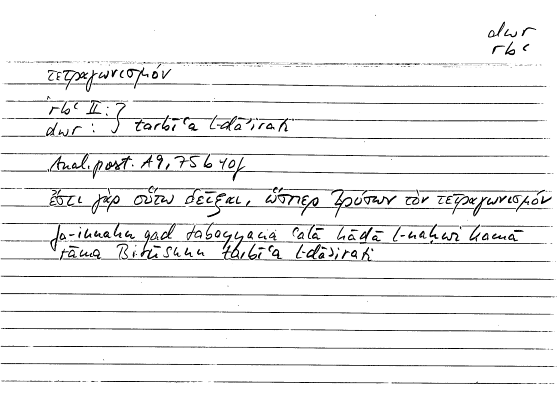 dwr
rbʿ
τετραγωνισμόν
rbʿ II : }
dwr : } tarbīʿa l-dāʾirati
Anal. post. A9, 75 b 40f
ἔστι γὰρ οὕτω δεῖξαι, ὥσπερ Βρύσων τὸν τετραγωνισμόν
fa-innahu qad tabayyana ʿalā hādā l-naḥwi kamā
rāma Birūsunu tarbīʿa l-dāʾirati